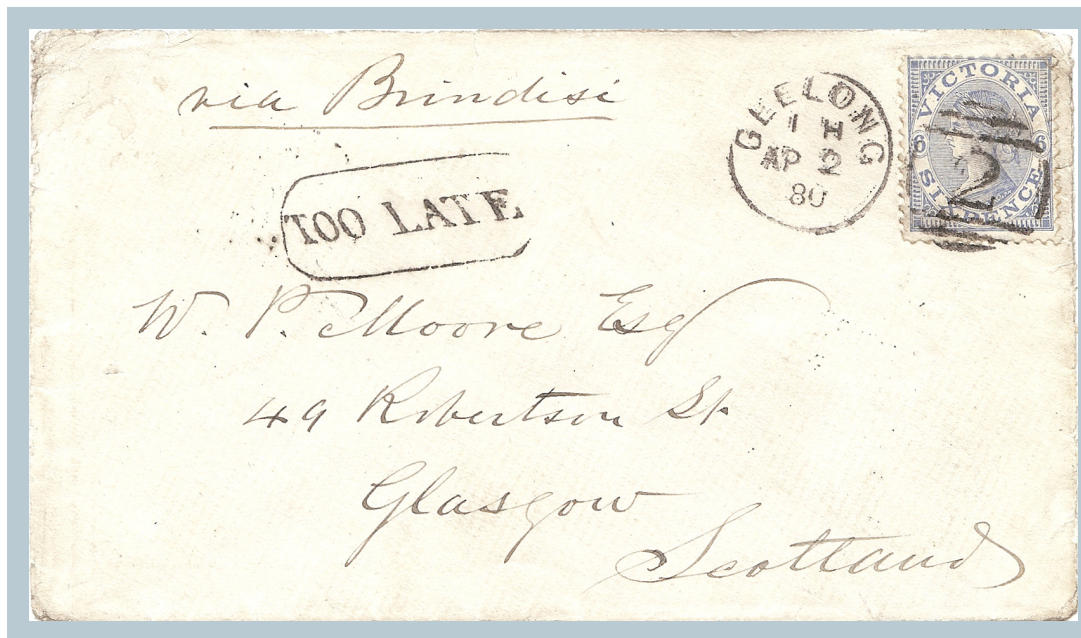 via Brindisi
GEELONG
1 H
AP 2
80
VICTORIA
6 6
2
SIXPENCE
TOO LATE
W. P. Moore Esq
49 Robertson St.
Glasgow
Scotland